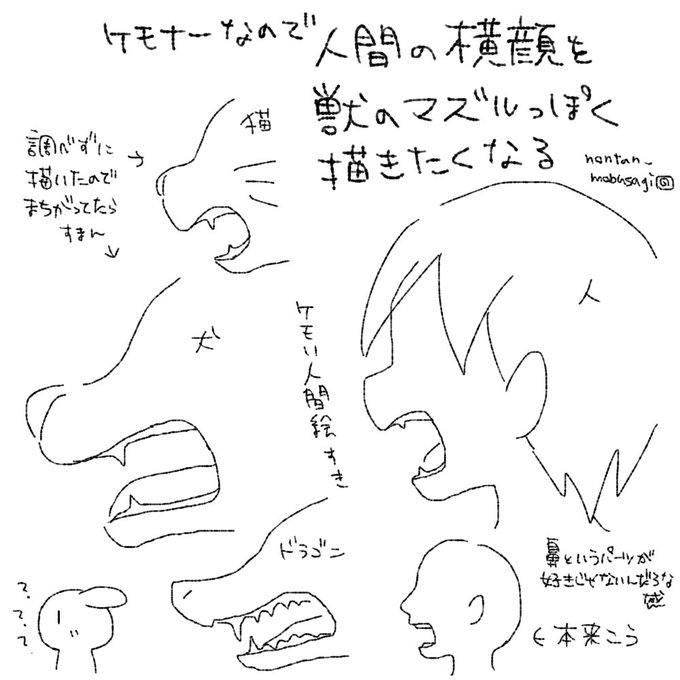 ケモナーなので人間の横顔を
獣のマズルっぽく
描きたくなる
nontan_
mobusagi
猫
調べずに
描いたので
まちがってたら
すまん
→
↓
人
犬
ケモい人間絵すき
ドラゴン
鼻というパーツが
好きじゃないんだろな
感
←本来こう
て、て、て、